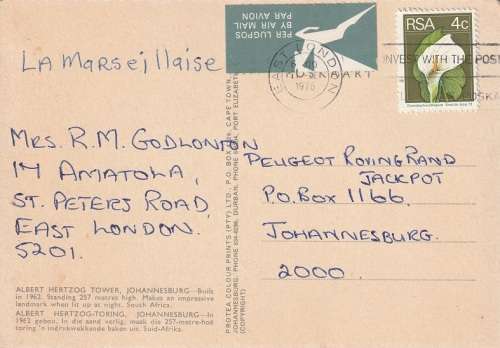 La Marseillaise
PER LUGPOS
BY AIR MAIL
PAR AVION
EAST LONDON
1976
POSKAART
RSA 4c
INVEST WITH THE POST
Mrs. R.M. Godlonton
14 Amatola,
St. Peters Road,
East London.
5201.
Peugeot Roving Rand
Jackpot
P.O. Box 1166.
Johannesburg.
2000.
ALBERT HERTZOG TOWER, JOHANNESBURG—Built
in 1962. Standing 257 metres high. Makes an impressive
landmark when lit up at night. South Africa.
ALBERT HERTZOG-TORING, JOHANNESBURG—In
1962 gebou. In die aand verlig, maak die 257-metre-hoë
toring 'n indrukwekkende baken uit. Suid-Afrika.
PROTEA COLOUR PRINTS (PTY) LTD., P.O. BOX CAPE TOWN,
JOHANNESBURG, PHONE DURBAN, PHONE PORT ELIZABETH,
(COPYRIGHT)